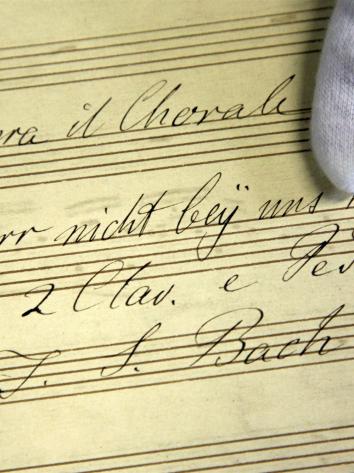 ra il Chorale
rr nicht beÿ uns
2 Clav. e Ped
J. S. Bach